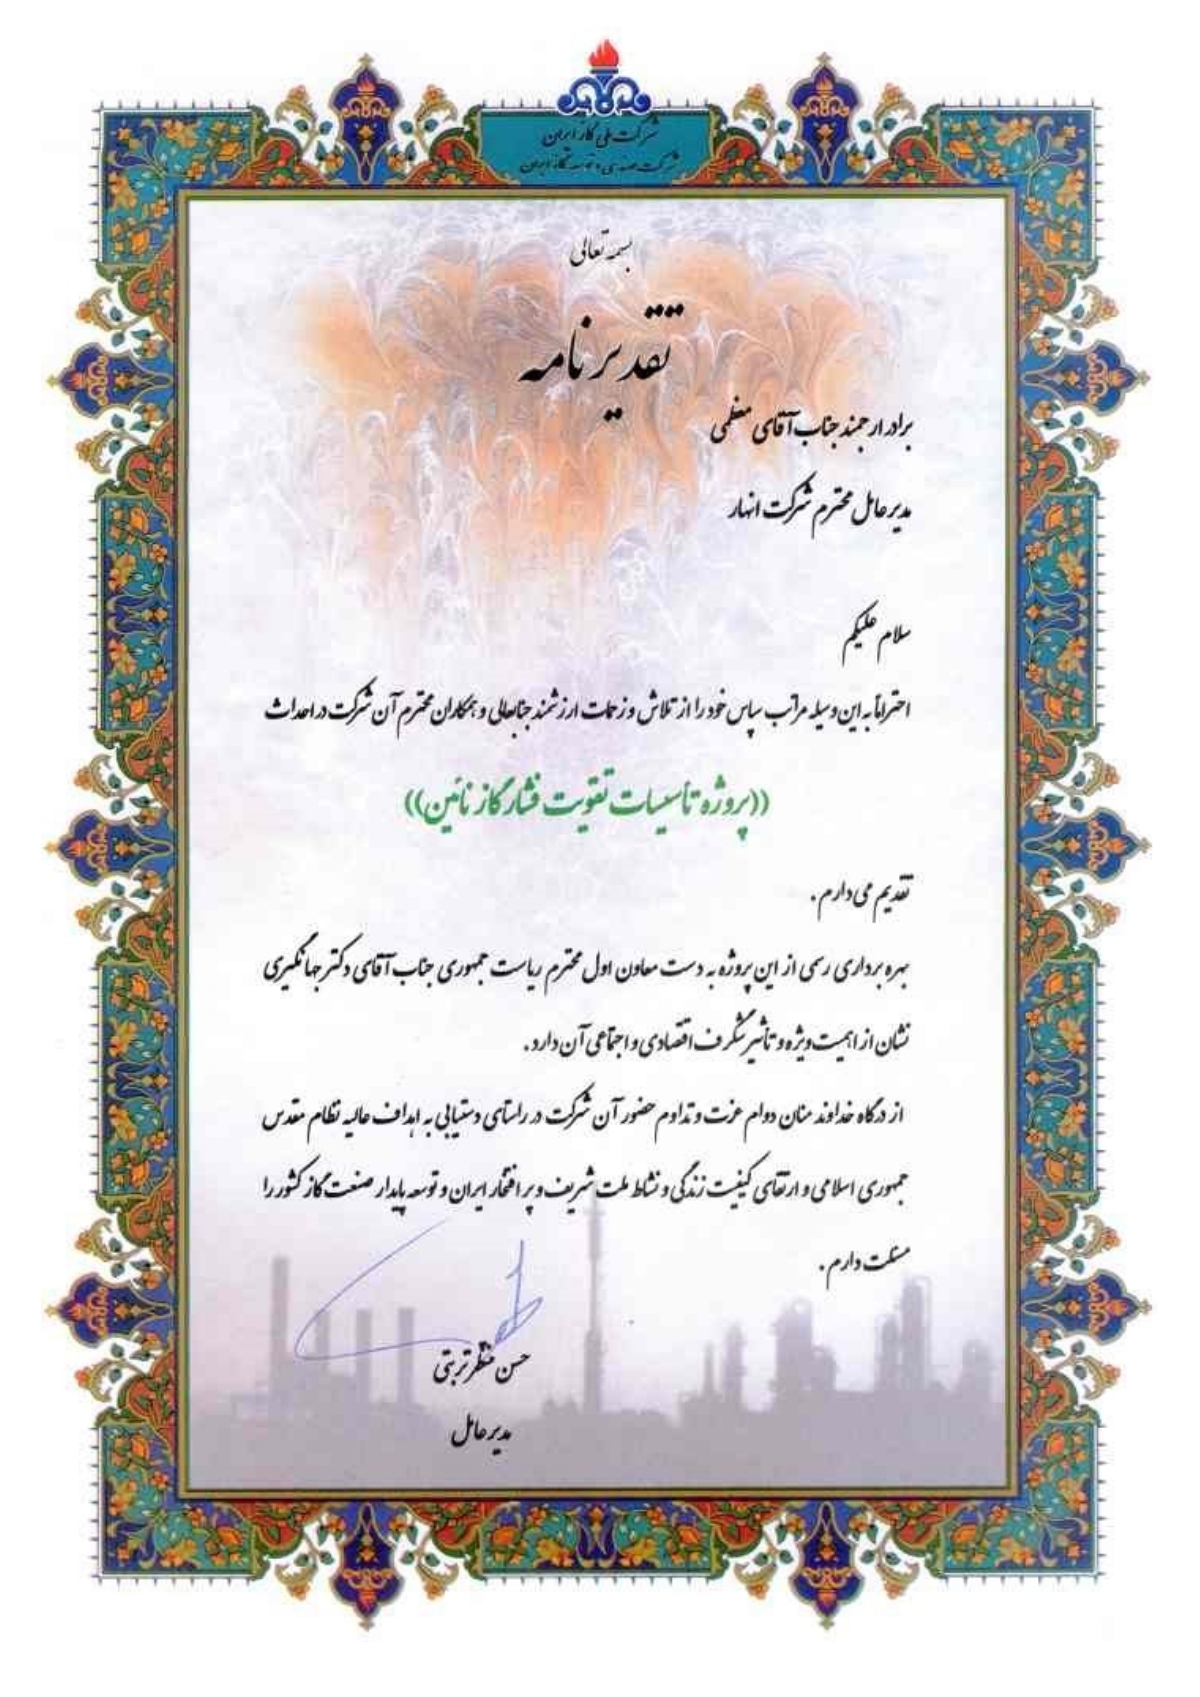 شرکت ملی گاز ایران
شرکت مهندسی و توسعه گاز ایران
بسمه تعالی
تقدیرنامه
برادر ارجمند جناب آقای معظمی
مدیرعامل محترم شرکت انهار
سلام علیکم
احتراماً به این وسیله مراتب سپاس خود را از تلاش و زحمات ارزشمند جنابعالی و همکاران محترم آن شرکت در احداث
((پروژه تأسیسات تقویت فشار گاز نائین))
تقدیم می دارم.
بهره برداری رسمی از این پروژه به دست معاون اول محترم ریاست جمهوری جناب آقای دکتر جهانگیری
نشان از اهمیت ویژه و تأثیر شگرف اقتصادی و اجتماعی آن دارد.
از درگاه خداوند منان دوام عزت و تداوم حضور آن شرکت در راستای دستیابی به اهداف عالیه نظام مقدس
جمهوری اسلامی و ارتقای کیفیت زندگی و نشاط ملت شریف و پر افتخار ایران و توسعه پایدار صنعت گاز کشور را
مسئلت دارم.
حسن منتظر تربتی
مدیرعامل